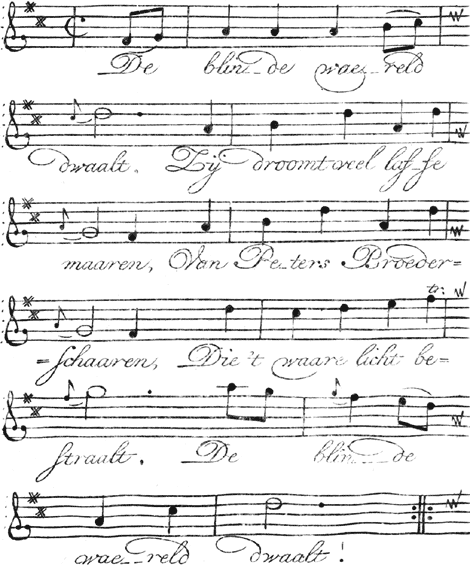 De blin-de wae-reld
dwaalt. Zij droomt veel laf-fe
maaren, Van Pe-ters Broeder=
=schaaren, Die 't waare licht be=
straalt. De blin-de
wae-reld dwaalt!